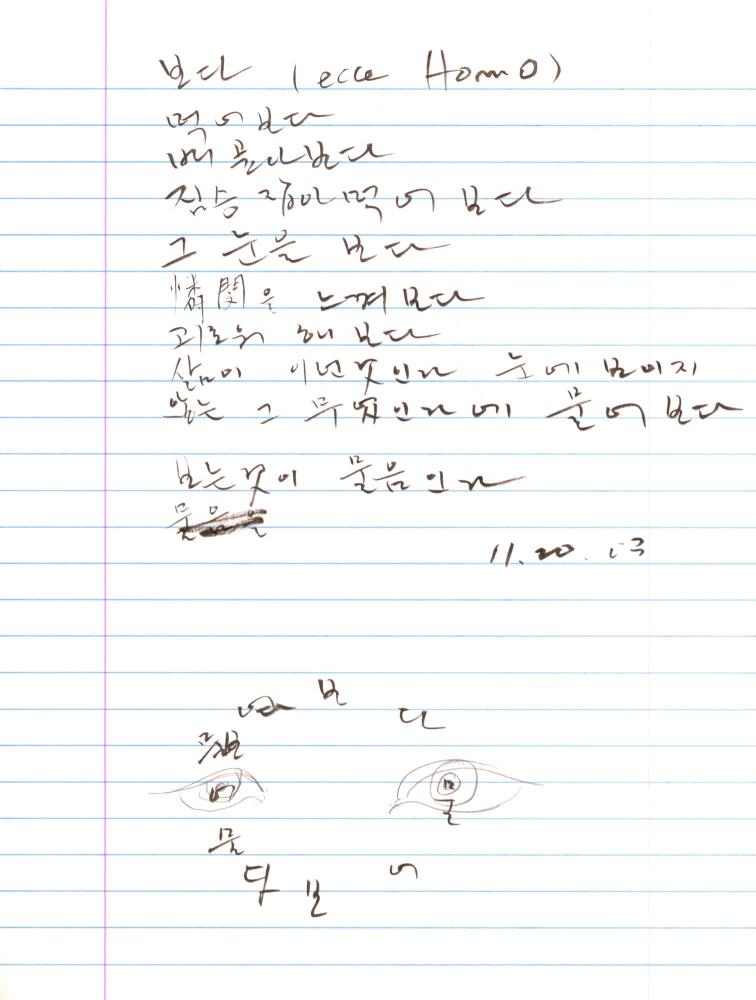 보다 (ecce Homo)
먹어보다
배 곯아보다
짐승 잡아 먹어 보다
그 눈을 보다
憐閔을 느껴보다
괴로워 해보다
삶이 이런 것인가 눈에 보이지
않는 그 무엇인가에 물어 보다
보는 것이 물음인가
물음을
11.20. 03
보
다
물
물
어
보